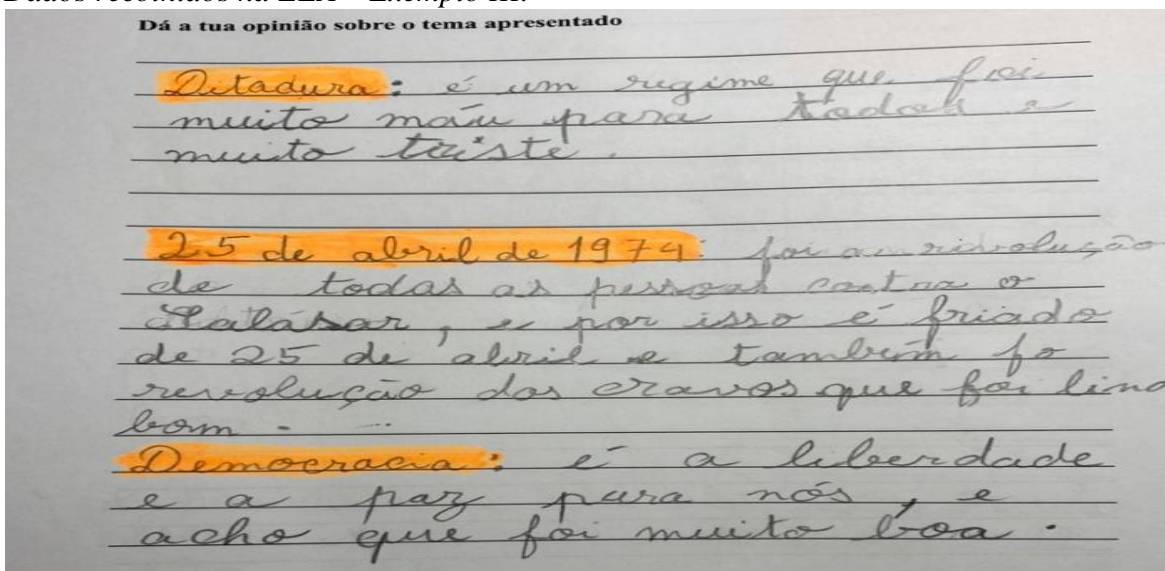 Dá a tua opinião sobre o tema apresentado
Ditadura: é um regime que foi
muito máu para todos e
muito triste.
25 de abril de 1974: foi a revolução
de todas as pessoas contra o
Salásar, e por isso é friado
de 25 de abril e também fo
revolução dos cravos que foi lind
bom.
Democracia: é a liberdade
e a paz para nós, e
acho que foi muito boa.